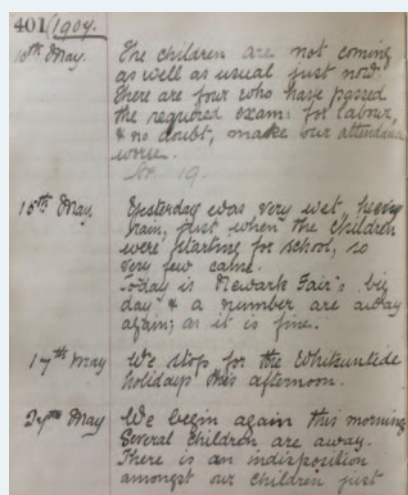 401 1904.
10th May. The children are not coming
as well as usual just now.
There are four who have passed
the required exam: for labour,
& no doubt, make our attendance
worse.
Av. 19.
15th May. Yesterday was very wet, heavy
rain, just when the children
were starting for school, so
very few came.
Today is Newark Fair's big
day & a number are away
again; as it is fine.
17th May We stop for the Whitsuntide
holidays this afternoon.
May We begin again this morning
Several children are away.
There is an indisposition
amongst our children just